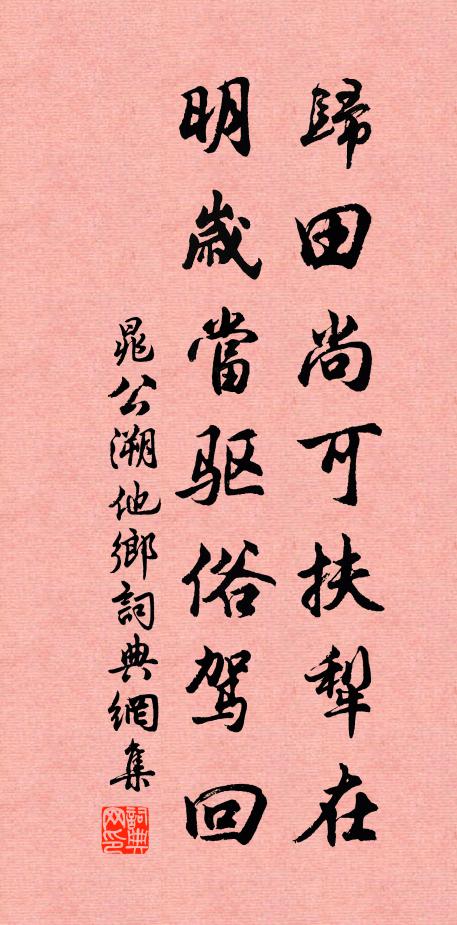 歸田尚可扶犁在
明歲當驱俗駕回
晁公溯他鄉詞典網集
詞典网印